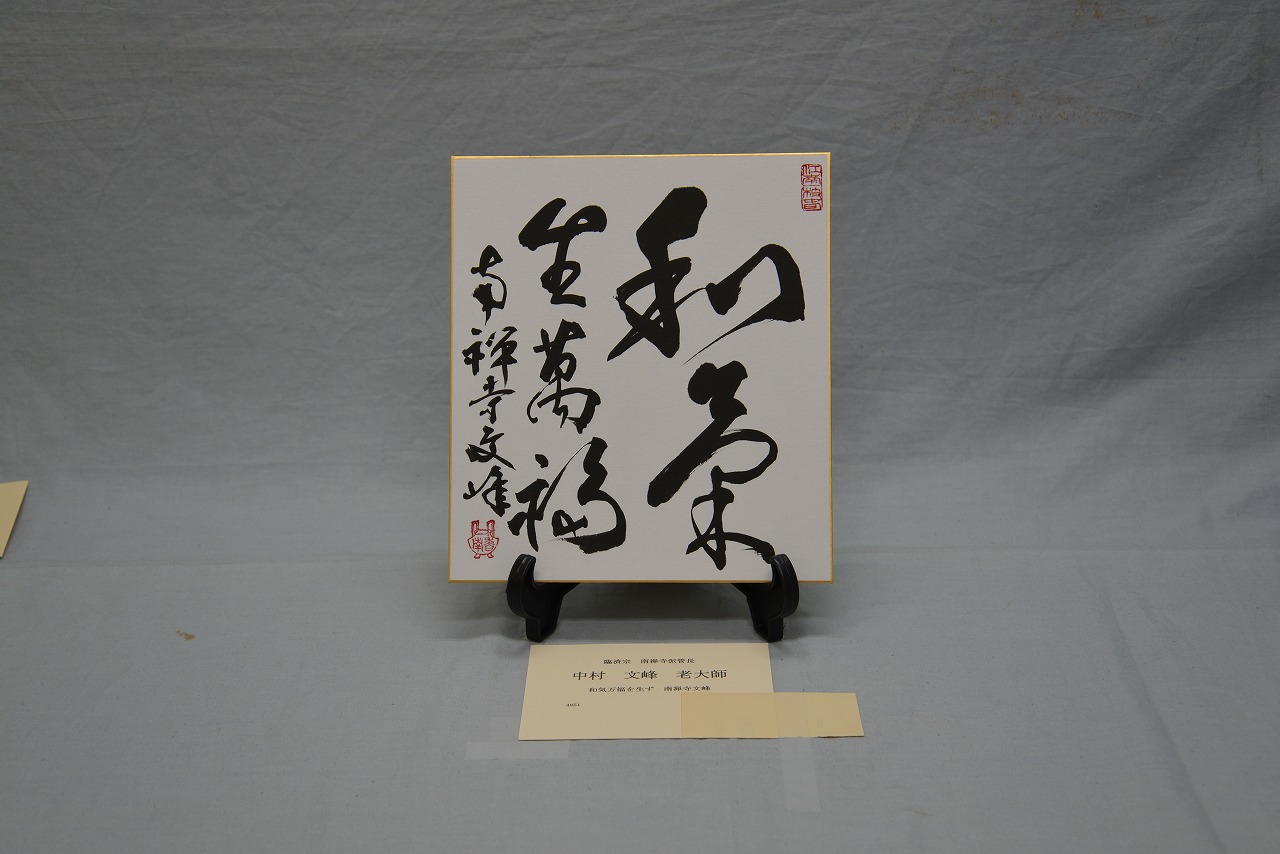 和氣
生萬福
南禅寺文峰
臨済宗　南禅寺派管長
中村　文峰　老大師
和気万福を生ず　南禅寺文峰